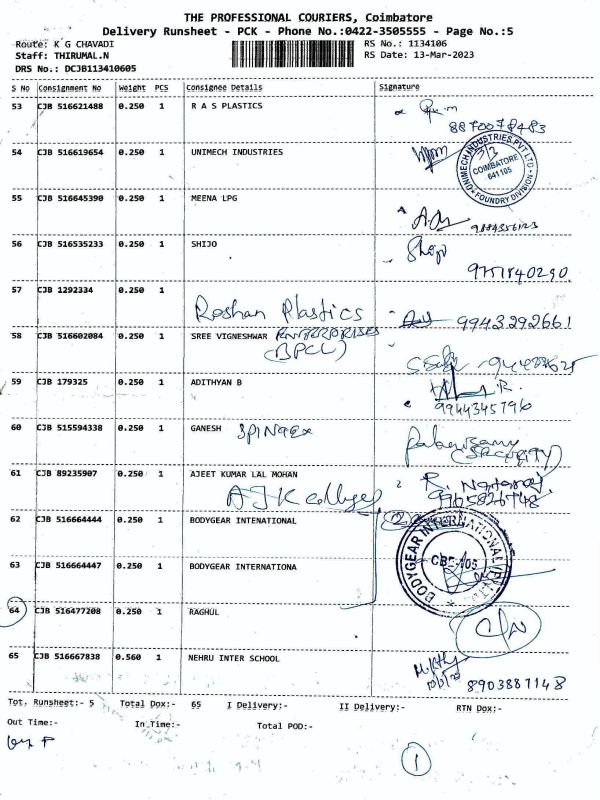 THE PROFESSIONAL COURIERS, Coimbatore
Delivery Runsheet - PCK - Phone No.:0422-3505555 - Page No.:5
Route: K G CHAVADI
RS No.: 1134106
Staff: THIRUMAL.N
RS Date: 13-Mar-2023
DRS No.: DCJB113410605
S No Consignment No Weight PCS Consignee Details Signature
53 CJB 516621488 0.250 1 R A S PLASTICS
8870078483
54 CJB 516619654 0.250 1 UNIMECH INDUSTRIES
UNIMECH INDUSTRIES PVT LTD
COIMBATORE
641105
FOUNDRY DIVISION
55 CJB 516645390 0.250 1 MEENA LPG
56 CJB 516535233 0.250 1 SHIJO
Shijo
9751840290
57 CJB 1292334 0.250 1
Roshan Plastics
9943292661
58 CJB 516602084 0.250 1 SREE VIGNESHWAR ENTERPRISES
(BPCL)
59 CJB 179325 0.250 1 ADITHYAN B
9944345796
60 CJB 515594338 0.250 1 GANESH SPINGEX
(SECURITY)
61 CJB 89235907 0.250 1 AJEET KUMAR LAL MOHAN
AJK college
R. Nataraj
9965826748
62 CJB 516664444 0.250 1 BODYGEAR INTENATIONAL
BODYGEAR INTERNATIONAL (P) LTD
CBE-105
63 CJB 516664447 0.250 1 BODYGEAR INTERNATIONA
64 CJB 516477208 0.250 1 RAGHUL
C/N
65 CJB 516667838 0.560 1 NEHRU INTER SCHOOL
8903887148
Tot. Runsheet:- 5 Total Dox:- 65 I Delivery:- II Delivery:- RTN Dox:-
Out Time:- In Time:- Total POD:-
1